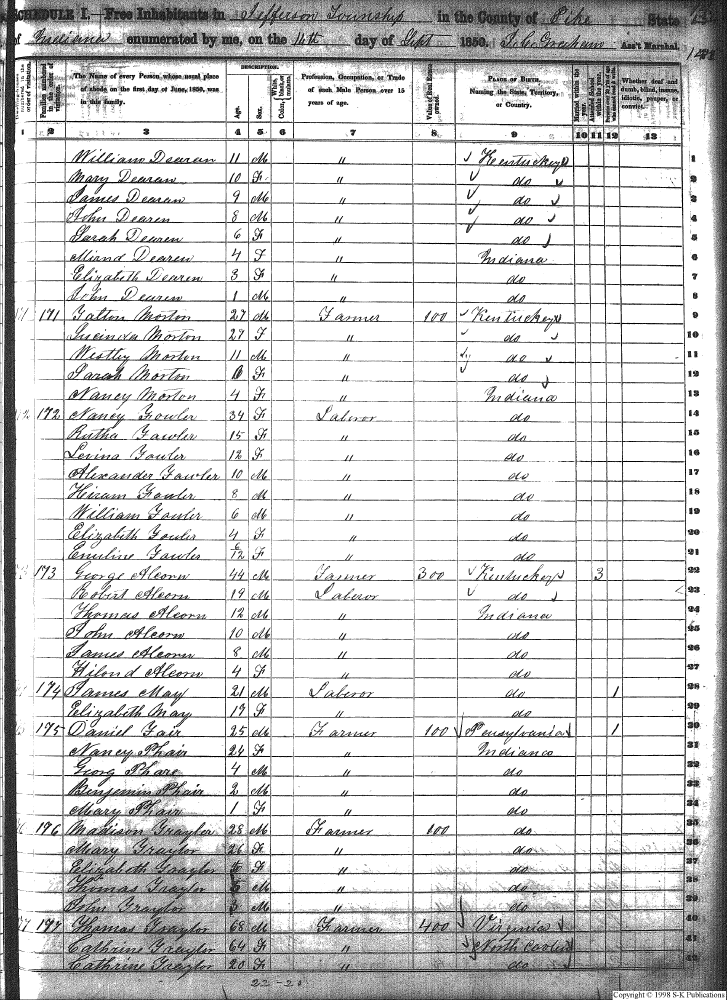 SCHEDULE I.—Free Inhabitants in Jefferson Township in the County of Pike State
of Indiana enumerated by me, on the 14th day of Sept 1850. Ass't Marshal.
The Name of every Person whose usual place of abode on the first day of June, 1850, was in this family.
DESCRIPTION.
Age.
Sex.
Profession, Occupation, or Trade of each Male Person over 15 years of age.
Value of Real Estate owned.
PLACE OF BIRTH. Naming the State, Territory, or Country.
Married within the year.
Whether deaf and dumb, blind, insane, idiotic, pauper, or convict.
2 3 4 5 6 7 8 9 10 11 12 13
William Dearan 11 M " Kentucky 1
Mary Dearan 10 F " do 2
James Dearan 9 M " do 3
John Dearen 8 M " do 4
Sarah Dearen 6 F " do 5
Miand Dearen 4 F " Indiana 6
Elizabeth Dearen 3 F " do 7
John Dearen 1 M " do 8
171 Tatton Morton 27 M Farmer 100 Kentucky 9
Lucinda Morton 27 F " do 10
Westley Morton 11 M " do 11
Sarah Morton 6 F " do 12
Nancy Morton 4 F " Indiana 13
172 Nancy Fowler 34 F Laberor do 14
Rutha Fowler 15 F " do 15
Levina Fowler 12 F " do 16
Alexander Fowler 10 M " do 17
Hiram Fowler 8 M " do 18
William Fowler 6 M " do 19
Elizabeth Fowler 4 F " do 20
Emiline Fowler 6/12 F " do 21
173 George Alcorn 44 M Farmer 300 Kentucky 3 22
Robert Alcorn 19 M Laberor do 23
Thomas Alcorn 12 M " Indiana 24
John Alcorn 10 M " do 25
James Alcorn 8 M " do 26
Hilond Alcorn 4 F " do 27
174 James May 21 M Laberor do 1 28
Elizabeth May 19 F " do 29
175 Daniel Fair 25 M Farmer 100 Pensylvania 1 30
Nancy Phair 24 F " Indiana 31
Georg Phare 4 M " do 32
Benjemin Phair 2 M " do 33
Mary Phair 1 F " do 34
176 Madison Graylor 28 M Farmer 100 do 35
Mary Graylor 26 F " do 36
Elizabeth Graylor F " do 37
Thomas Graylor M " do 38
John Graylor 3 M " do 39
177 Thomas Graylor 68 M Farmer 400 Virginia 40
Cathrine Graylor 64 F " North 41
Cathrine Graylor 20 F " do 42
Copyright © 1998 S-K Publications